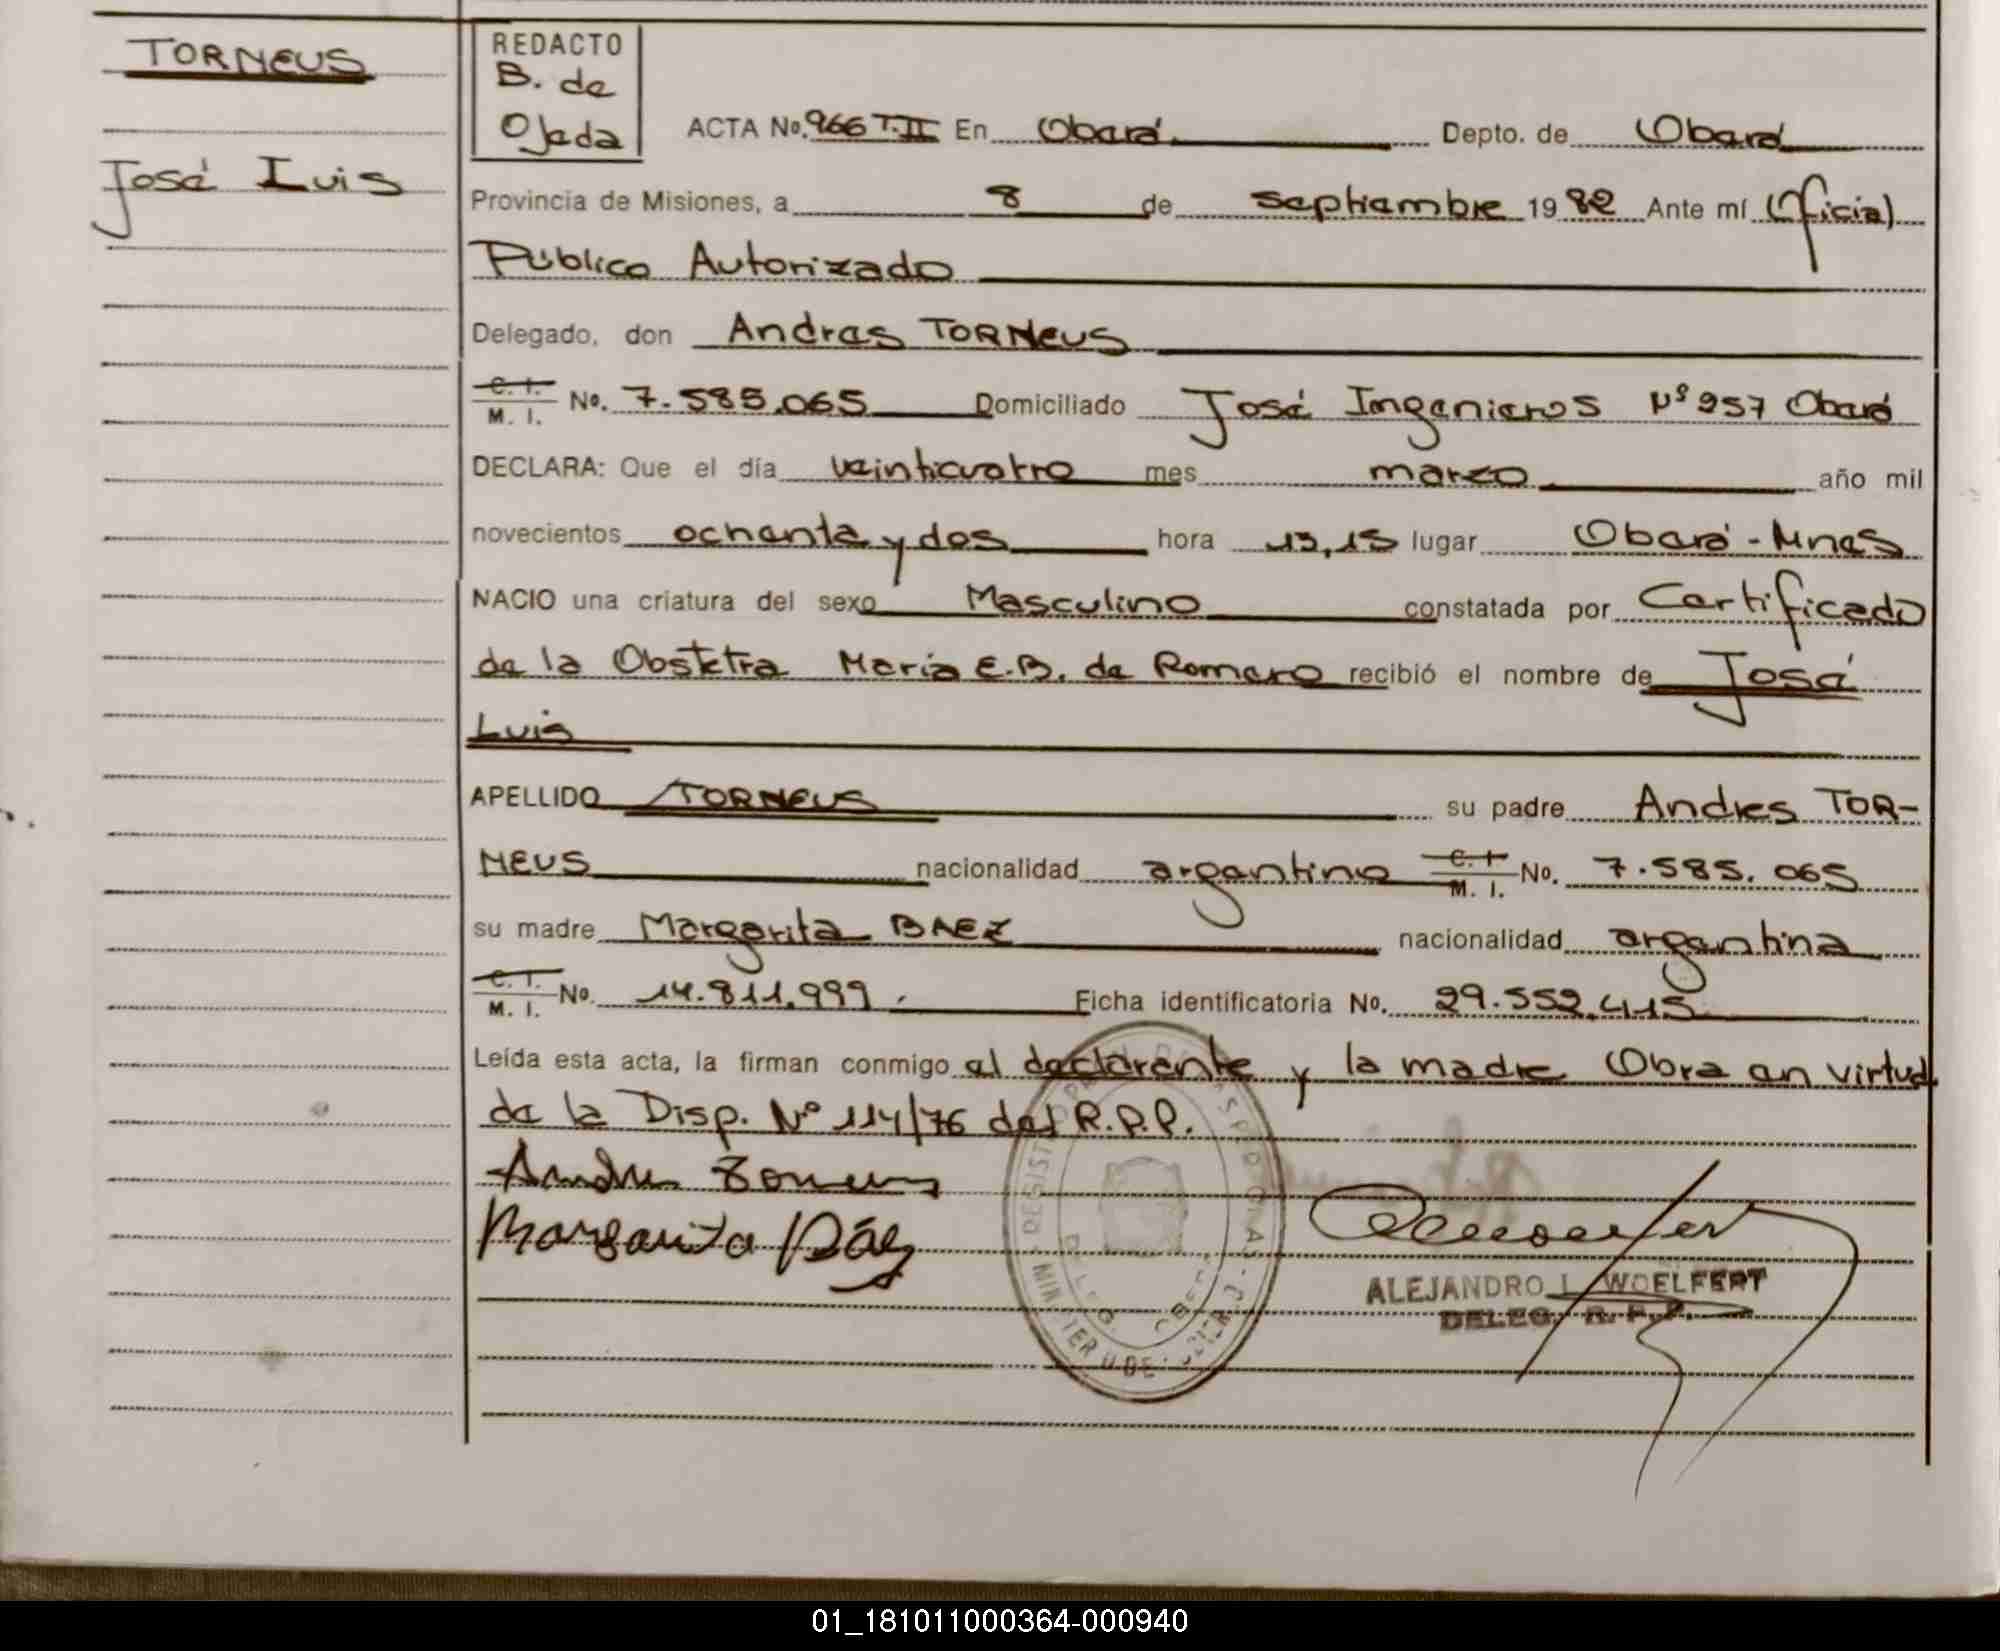 TORNEUS
José Luis
REDACTO
B. de
Ojeda
ACTA No. 966 T. II En Oberá Depto. de Oberá
Provincia de Misiones, a 8 de septiembre 1982 Ante mí Oficial
Público Autorizado
Delegado, don Andres TORNEUS
C. I.
M. I. No. 7.585.065 Domiciliado José Ingenieros Nº 957 Oberá
DECLARA: Que el día veinticuatro mes marzo año mil
novecientos ochenta y dos hora 13,15 lugar Oberá - Mnes
NACIO una criatura del sexo Masculino constatada por Certificado
de la Obstetra María E.B. de Romero recibió el nombre de José
Luis
APELLIDO TORNEUS su padre Andres TOR-
NEUS nacionalidad argentino C. I. M. I. No. 7.585.065
su madre Margarita BAEZ nacionalidad argentina
C. I.
M. I. No. 14.811.999. Ficha identificatoria No. 29.552.415
Leída esta acta, la firman conmigo el declarante y la madre Obra en virtud
de la Disp. Nº 114/76 del R.P.P.
Andres Torneus
Margarita Báez
ALEJANDRO L. WOELFERT
DELEG. R. P. P.
01_181011000364-000940